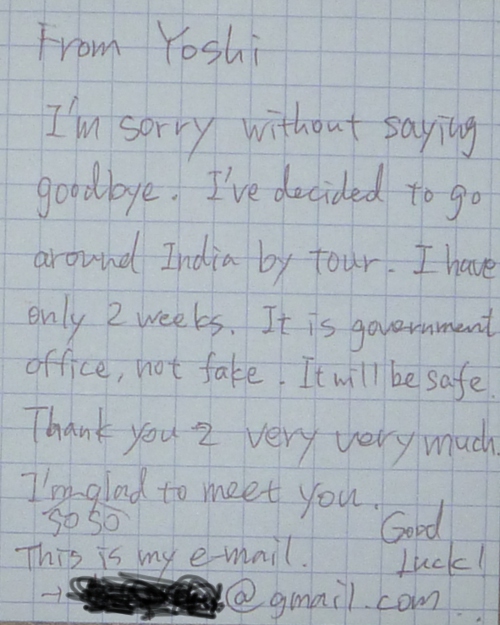 From Yoshi
I'm sorry without saying
goodbye. I've decided to go
around India by tour. I have
only 2 weeks. It is government
office, not fake. It will be safe.
Thank you 2 very very much.
I'm glad to meet you.
so so
Good
This is my e-mail. Luck!
→ @gmail.com